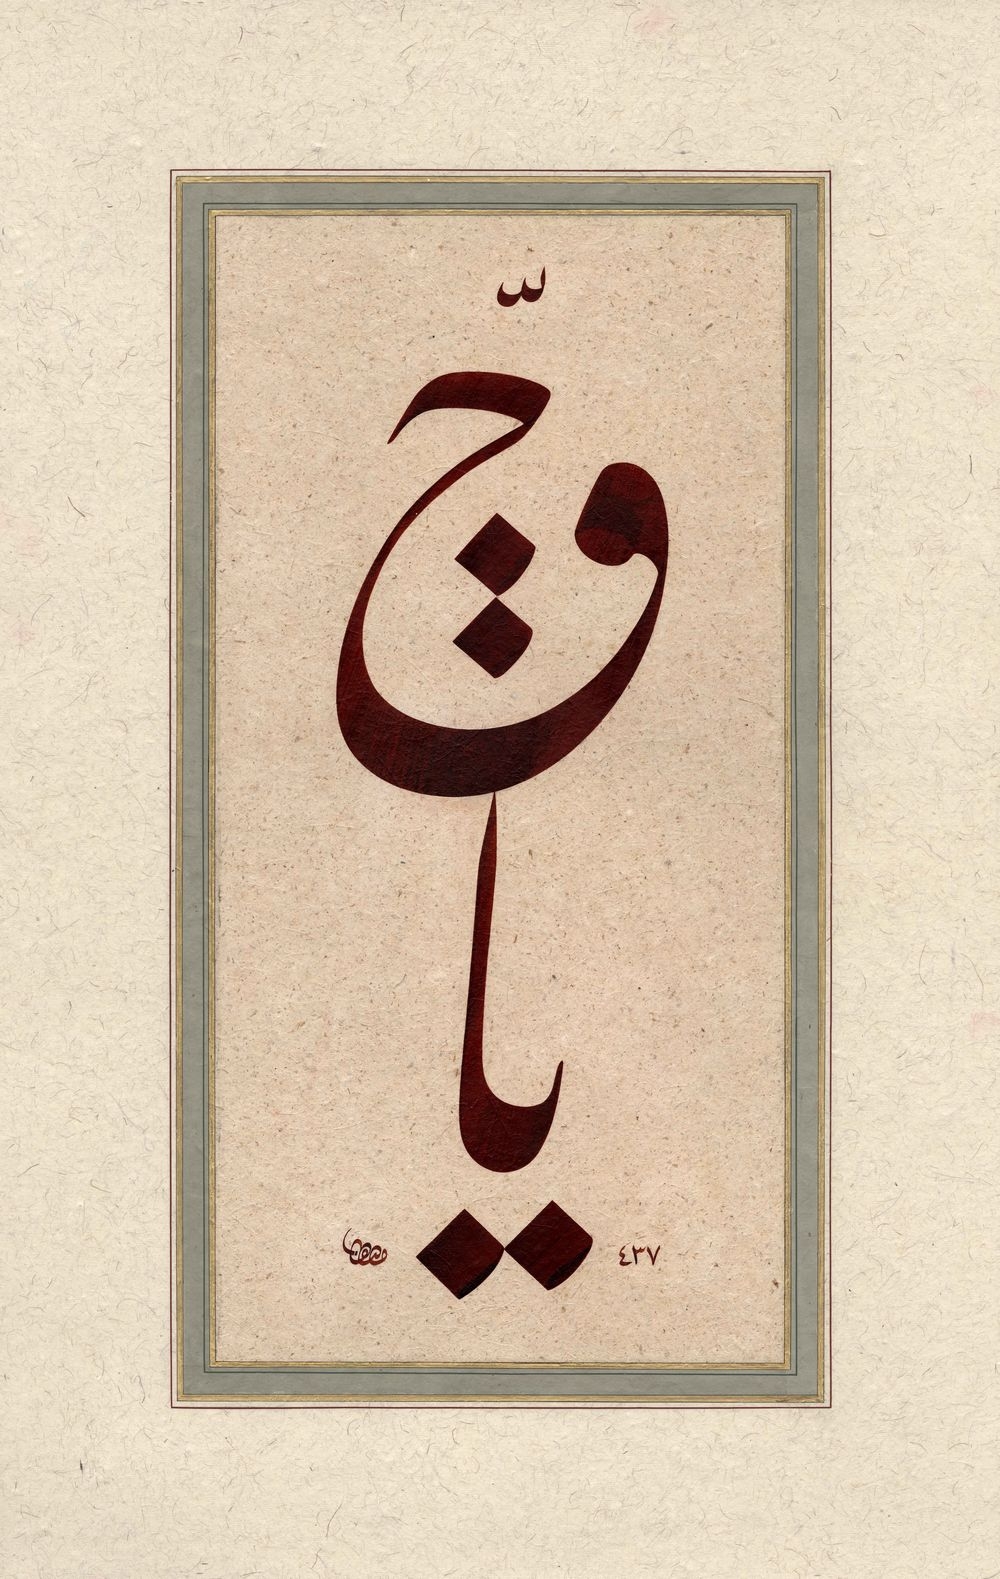 يا
حقّ
٤٣٧